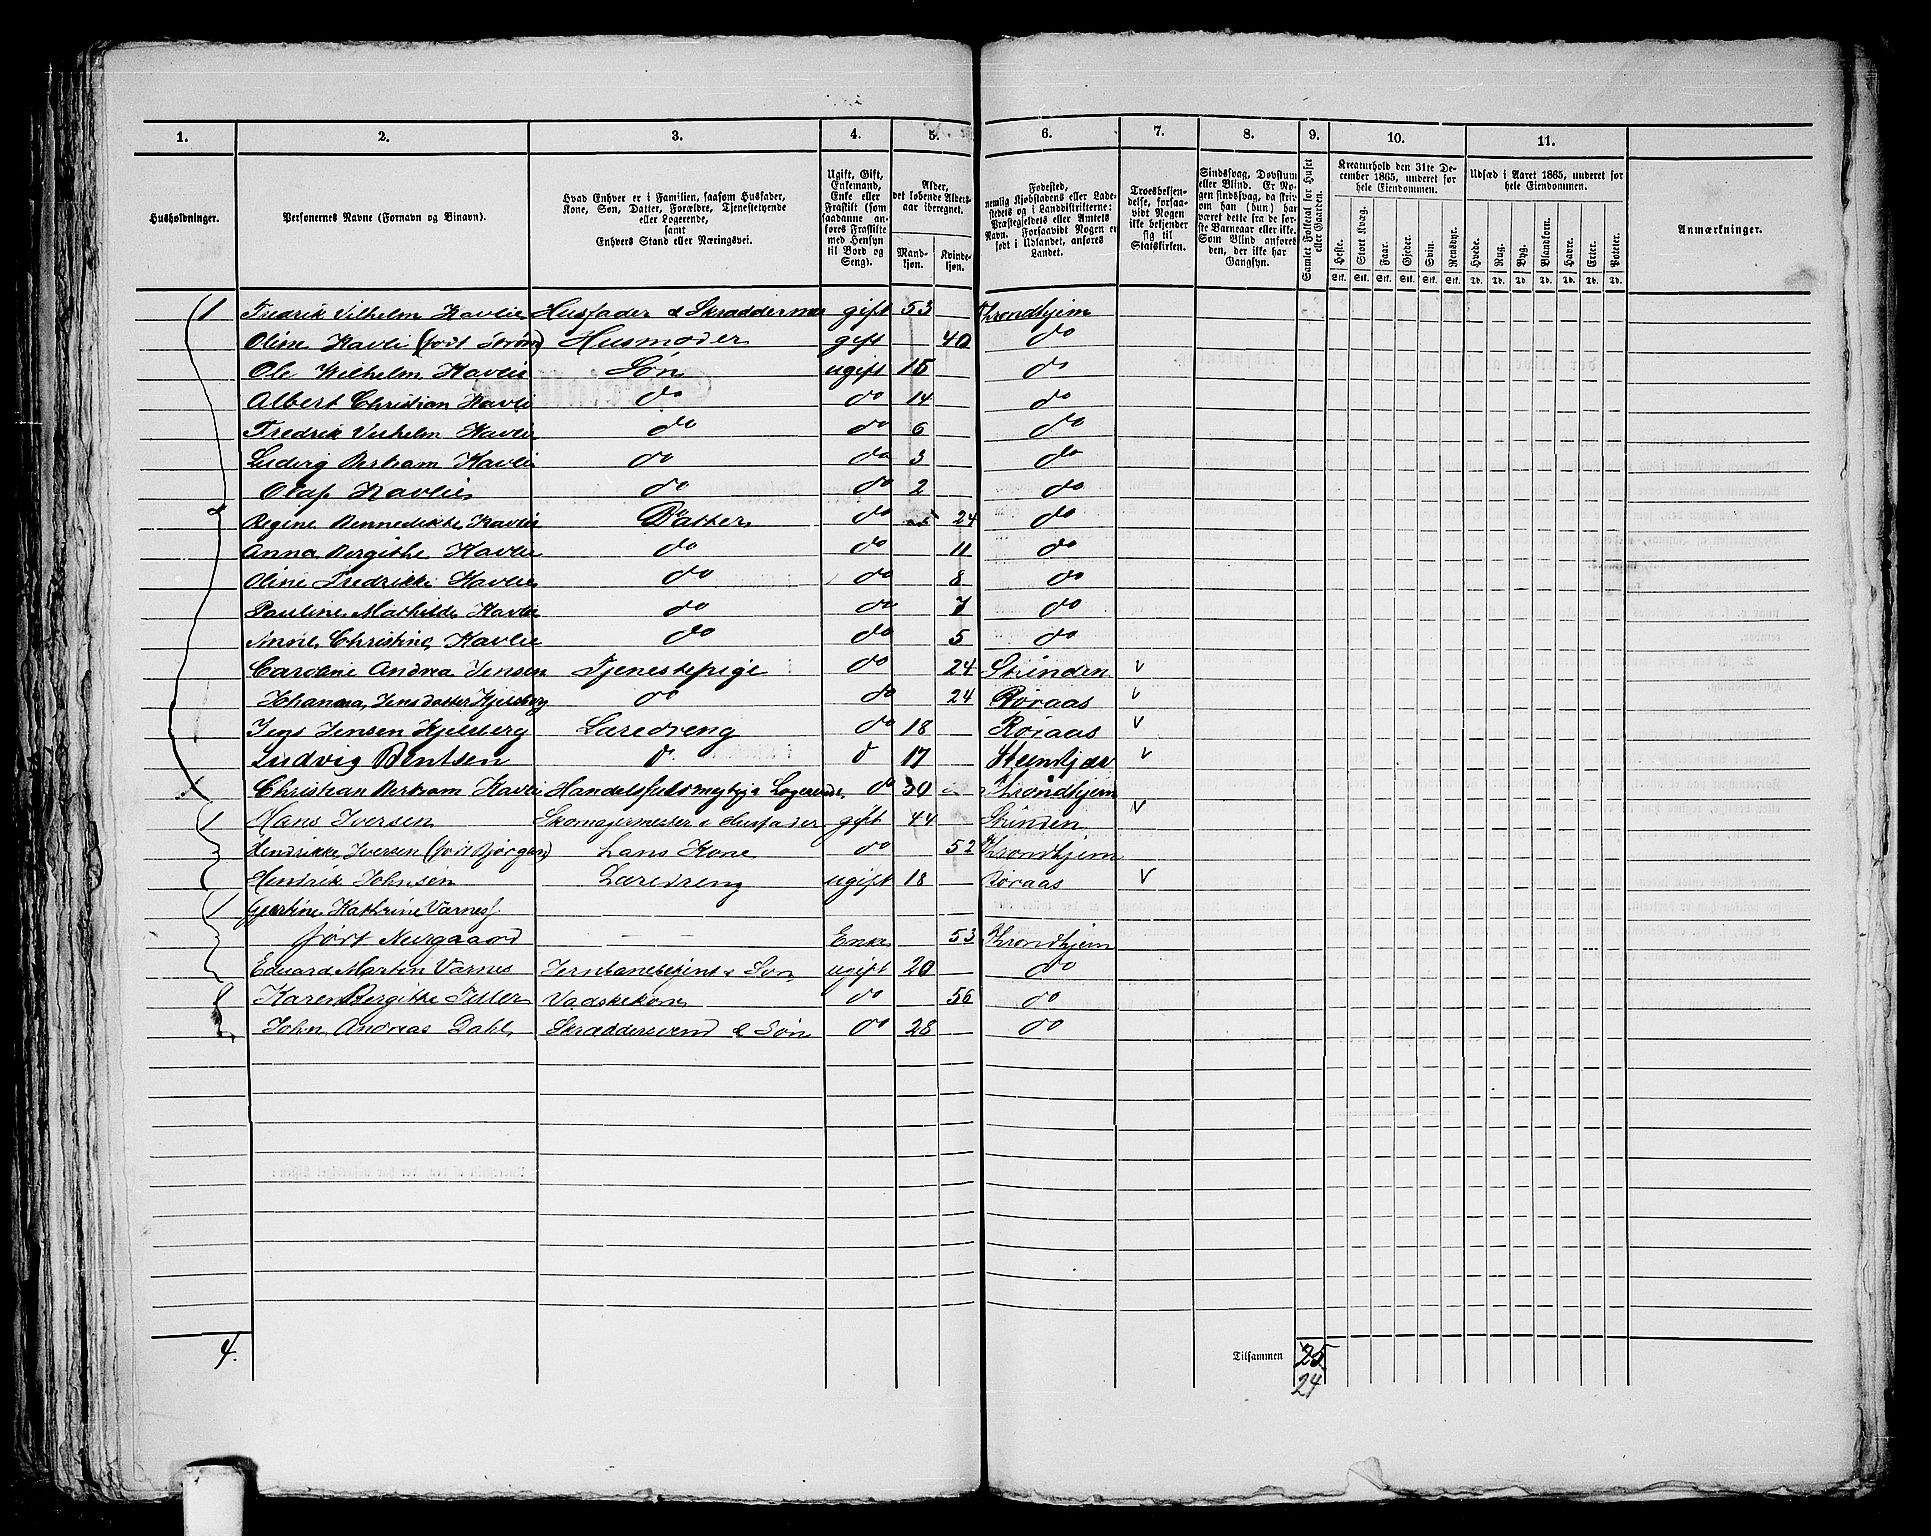 1. 2. 3. 4. 5. 6. 7. 8. 9. 10. 11.
Husholdninger.
Personernes Navne (Fornavn og Binavn).
Hvad Enhver er i Familien, saasom Husfader,
Kone, Søn, Datter, Forældre, Tjenestetyende
eller Logerende,
samt
Enhvers Stand eller Næringsvei.
Ugift, Gift,
Enkemand,
Enke eller
Fraskilt (som
saadanne an-
føres Fraskilte
med Hensyn
til Bord og
Seng).
Alder,
det løbende Alders-
aar iberegnet.
Mand-
kjøn.
Kvinde-
kjøn.
Fødested,
nemlig Kjøbstadens eller Lade-
stedets og i Landdistrikterne:
Præstegjeldets eller Amtets
Navn. Forsaavidt Nogen er
født i Udlandet, anføres
Landet.
Troesbekjen-
delse, forsaa-
vidt Nogen
ikke bekjender
sig til
Statskirken.
Sindssvag, Døvstum
eller Blind. Er No-
gen sindssvag, da skri-
ves om han (hun) har
været dette fra de før-
ste Barneaar eller ikke.
Som Blind anføres
den, der ikke har
Gangsyn.
Samlet Folketal for Huset
eller Gaarden.
Kreaturhold den 31te De-
cember 1865, underet for
hele Eiendommen.
Heste. Stort Kvæg. Faar. Gjeder. Svin. Rensdyr.
Stk. Stk. Stk. Stk. Stk. Stk.
Udsæd i Aaret 1865, underet for
hele Eiendommen.
Hvede. Rug. Byg. Blandkorn. Havre. Erter. Poteter.
Td. Td. Td. Td. Td. Td. Td.
Anmærkninger.
1 Fredrik Vilhelm Kavlie Husfader & Skraddermer gift 53 Throndhjem
Oline Kavli (født Strøm) Husmoder gift 40 do
Ole Wilhelm Kavlie Søn ugift 15 do
Albert Christian Kavli do do 14 do
Fredrik Vilhelm Kavlie do do 6 do
Ludvig Bertram Kavlie do do 3 do
Olaf Kavlie do do 2 do
Regine Bennedikte Kavlie Datter do 24 do
Anna Bergithe Kavlie do do 11 do
Oline Fredrikke Kavlie do do 8 do
Pauline Mathilde Kavlie do do 7 do
Anne Christine Kavlie do do 5 do
Caroline Andrea Jensen Tjenestepige do 24 Strinden v
Johanna Jensdatter Kjelsberg do do 24 Røraas v
Jens Jensen Kjelsberg Læredreng do 18 Røraas v
Ludvig Bentsen do do 17 Steinkjær v
Christian Bertram Kavli Handelsfuldmegtig Logerende do 30 Throndhjem
1 Hans Iversen Skomagermester & Husfader gift 44 Strinden v
Hendrikke Iversen (født Bjørgan) hans Kone do 52 Throndhjem
Hendrik Johnsen Læredreng ugift 18 Røraas v
1 Gjertine Kathrine Varnes
født Neergaard — — Enke 53 Throndhjem
Eduard Martin Varnes Jernbanebetjent & Søn ugift 20 do
Karen Bergitte Tiller Vadskekone do 56 do
John Andreas Dahl Skræddersvend & Søn do 28 do
4. Tilsammen 25
24